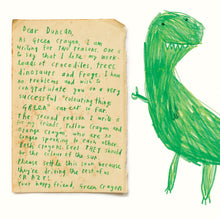 Dear Duncan,
As Green Crayon, I am
writing for TWO reasons. One is
to say that I like my work-
Loads of crocodiles, trees
dinosaurs and frogs. I have
no problems and wish to
congratulate you on a very
successful "colouring things
GREEN" career so far.
The second reason I write is
for my friends, Yellow Crayon and
Orange Crayon, who are no
longer speaking to each other.
Both crayons feel THEY should
be the colour of the sun.
Please settle this soon because
they're driving the rest of us
CRAZY!
Your happy friend, Green Crayon